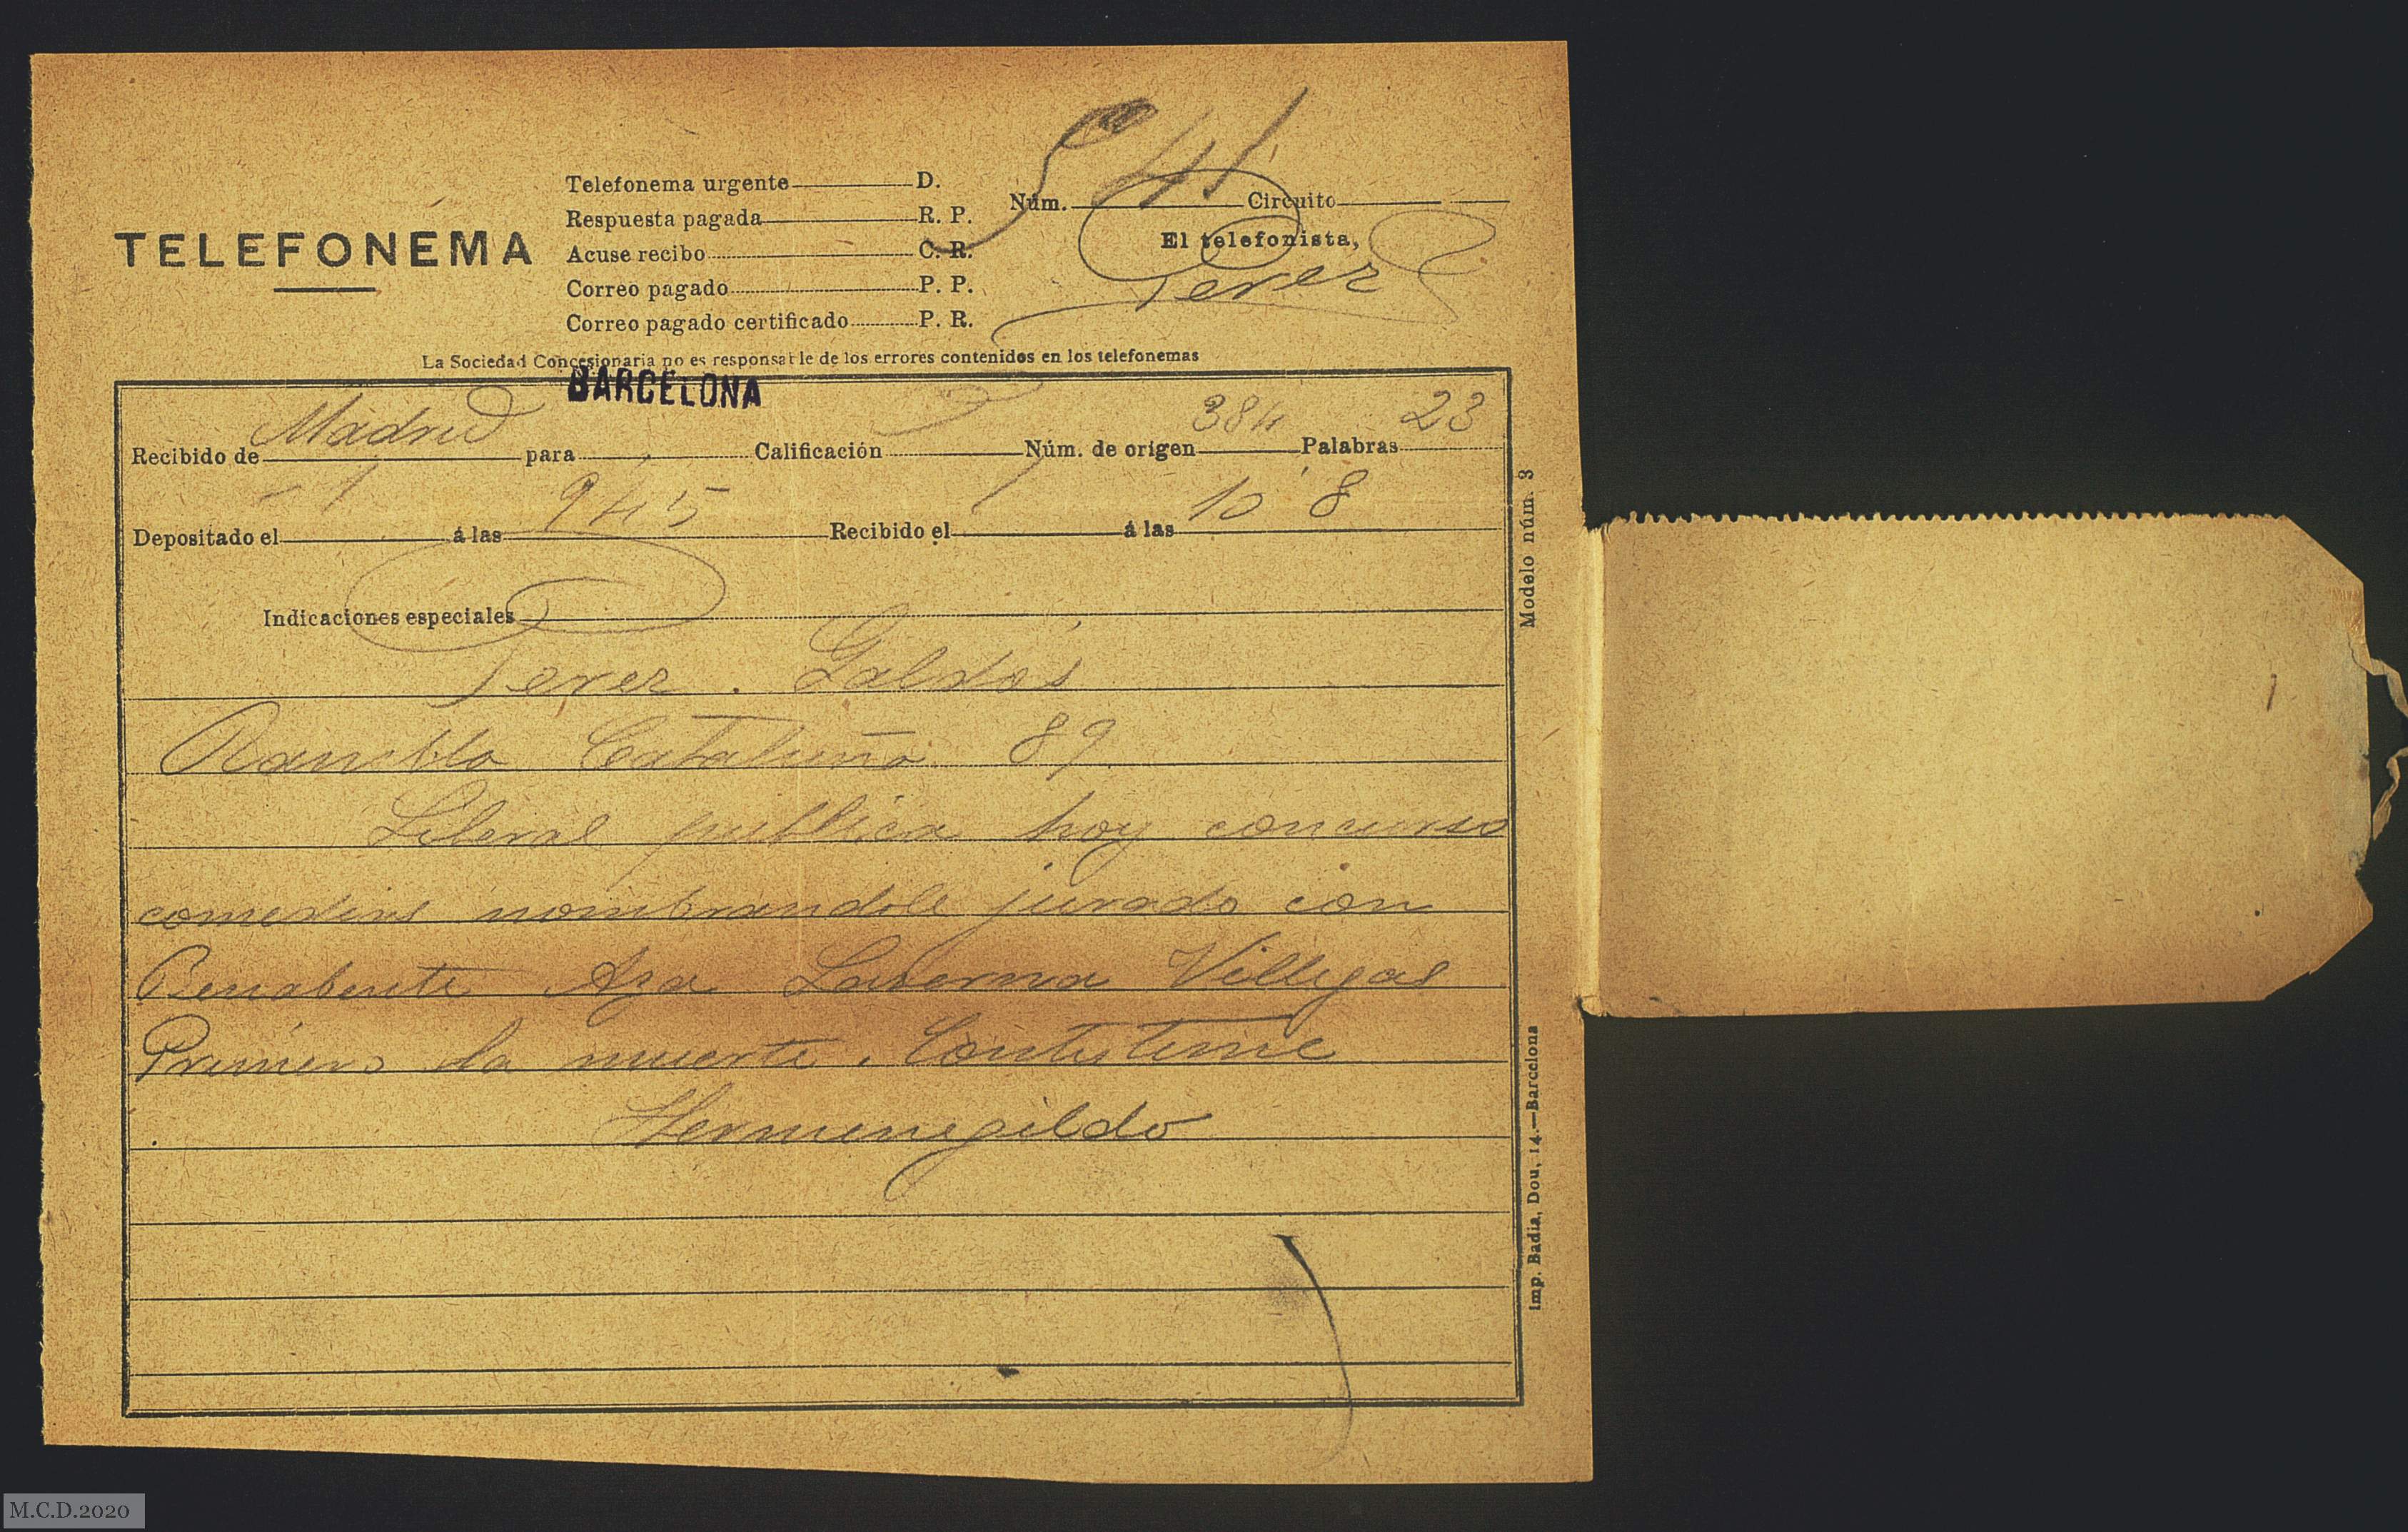 541
Telefonema urgente D.
Núm. Circuito
Respuesta pagada R. P.
El telefonista,
TELEFONEMA
Acuse recibo C. R.
Perez
Correo pagado P. P.
Correo pagado certificado P. R.
La Sociedad Concesionaria no es responsable de los errores contenidos en los telefonemas
BARCELONA
Recibido de Madrid para Calificación Núm. de origen 384 Palabras 23
Depositado el 1 á las 945 Recibido el 1 á las 10 8
Indicaciones especiales
Perez . Galdós
Rambla Cataluña 89
Liberal publica hoy concurso
comedias nombrandole jurado con
Benabente Aza Laserna Villegas
Primero la muerte . Contésteme
Hermenegildo
Modelo núm. 3
Imp. Badia, Dou, 14.—Barcelona
1
M.C.D.2020